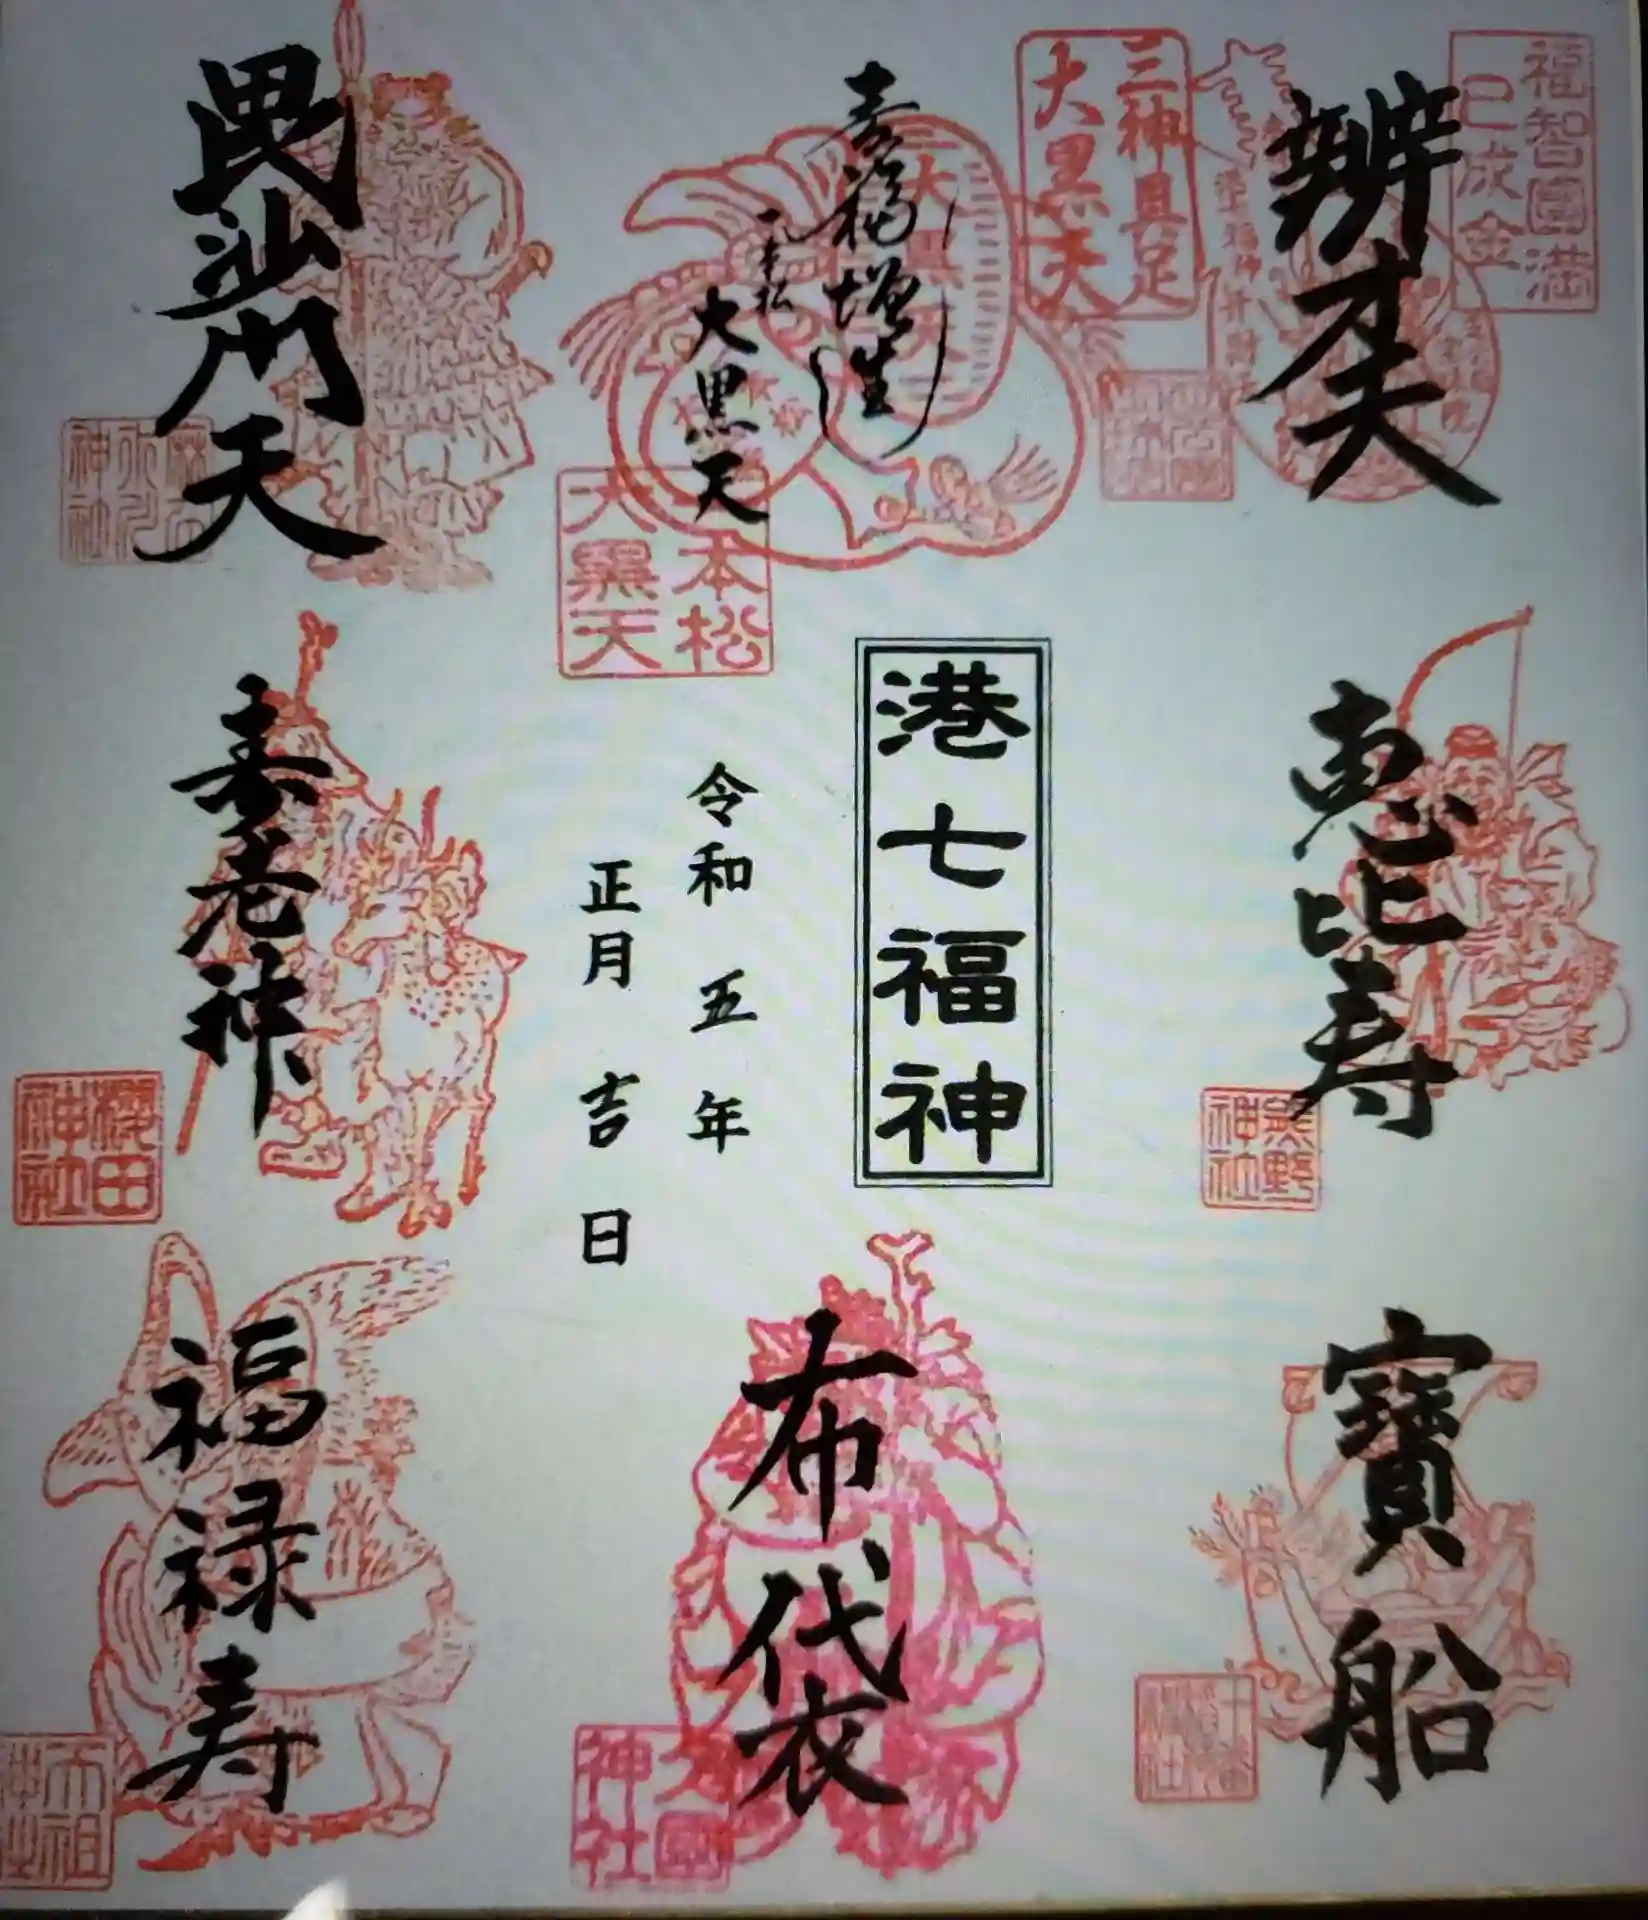 辨才天
福智圓満
巳成金
三神具足
大黒天
寿福増生
一本松
大黒天
本松
大黒天
毘沙門天
神社
恵比寿
熊野
神社
港七福神
令和五年
正月吉日
寿老神
櫻田
神社
寶船
布袋
久國
神社
福禄寿
天祖
神社